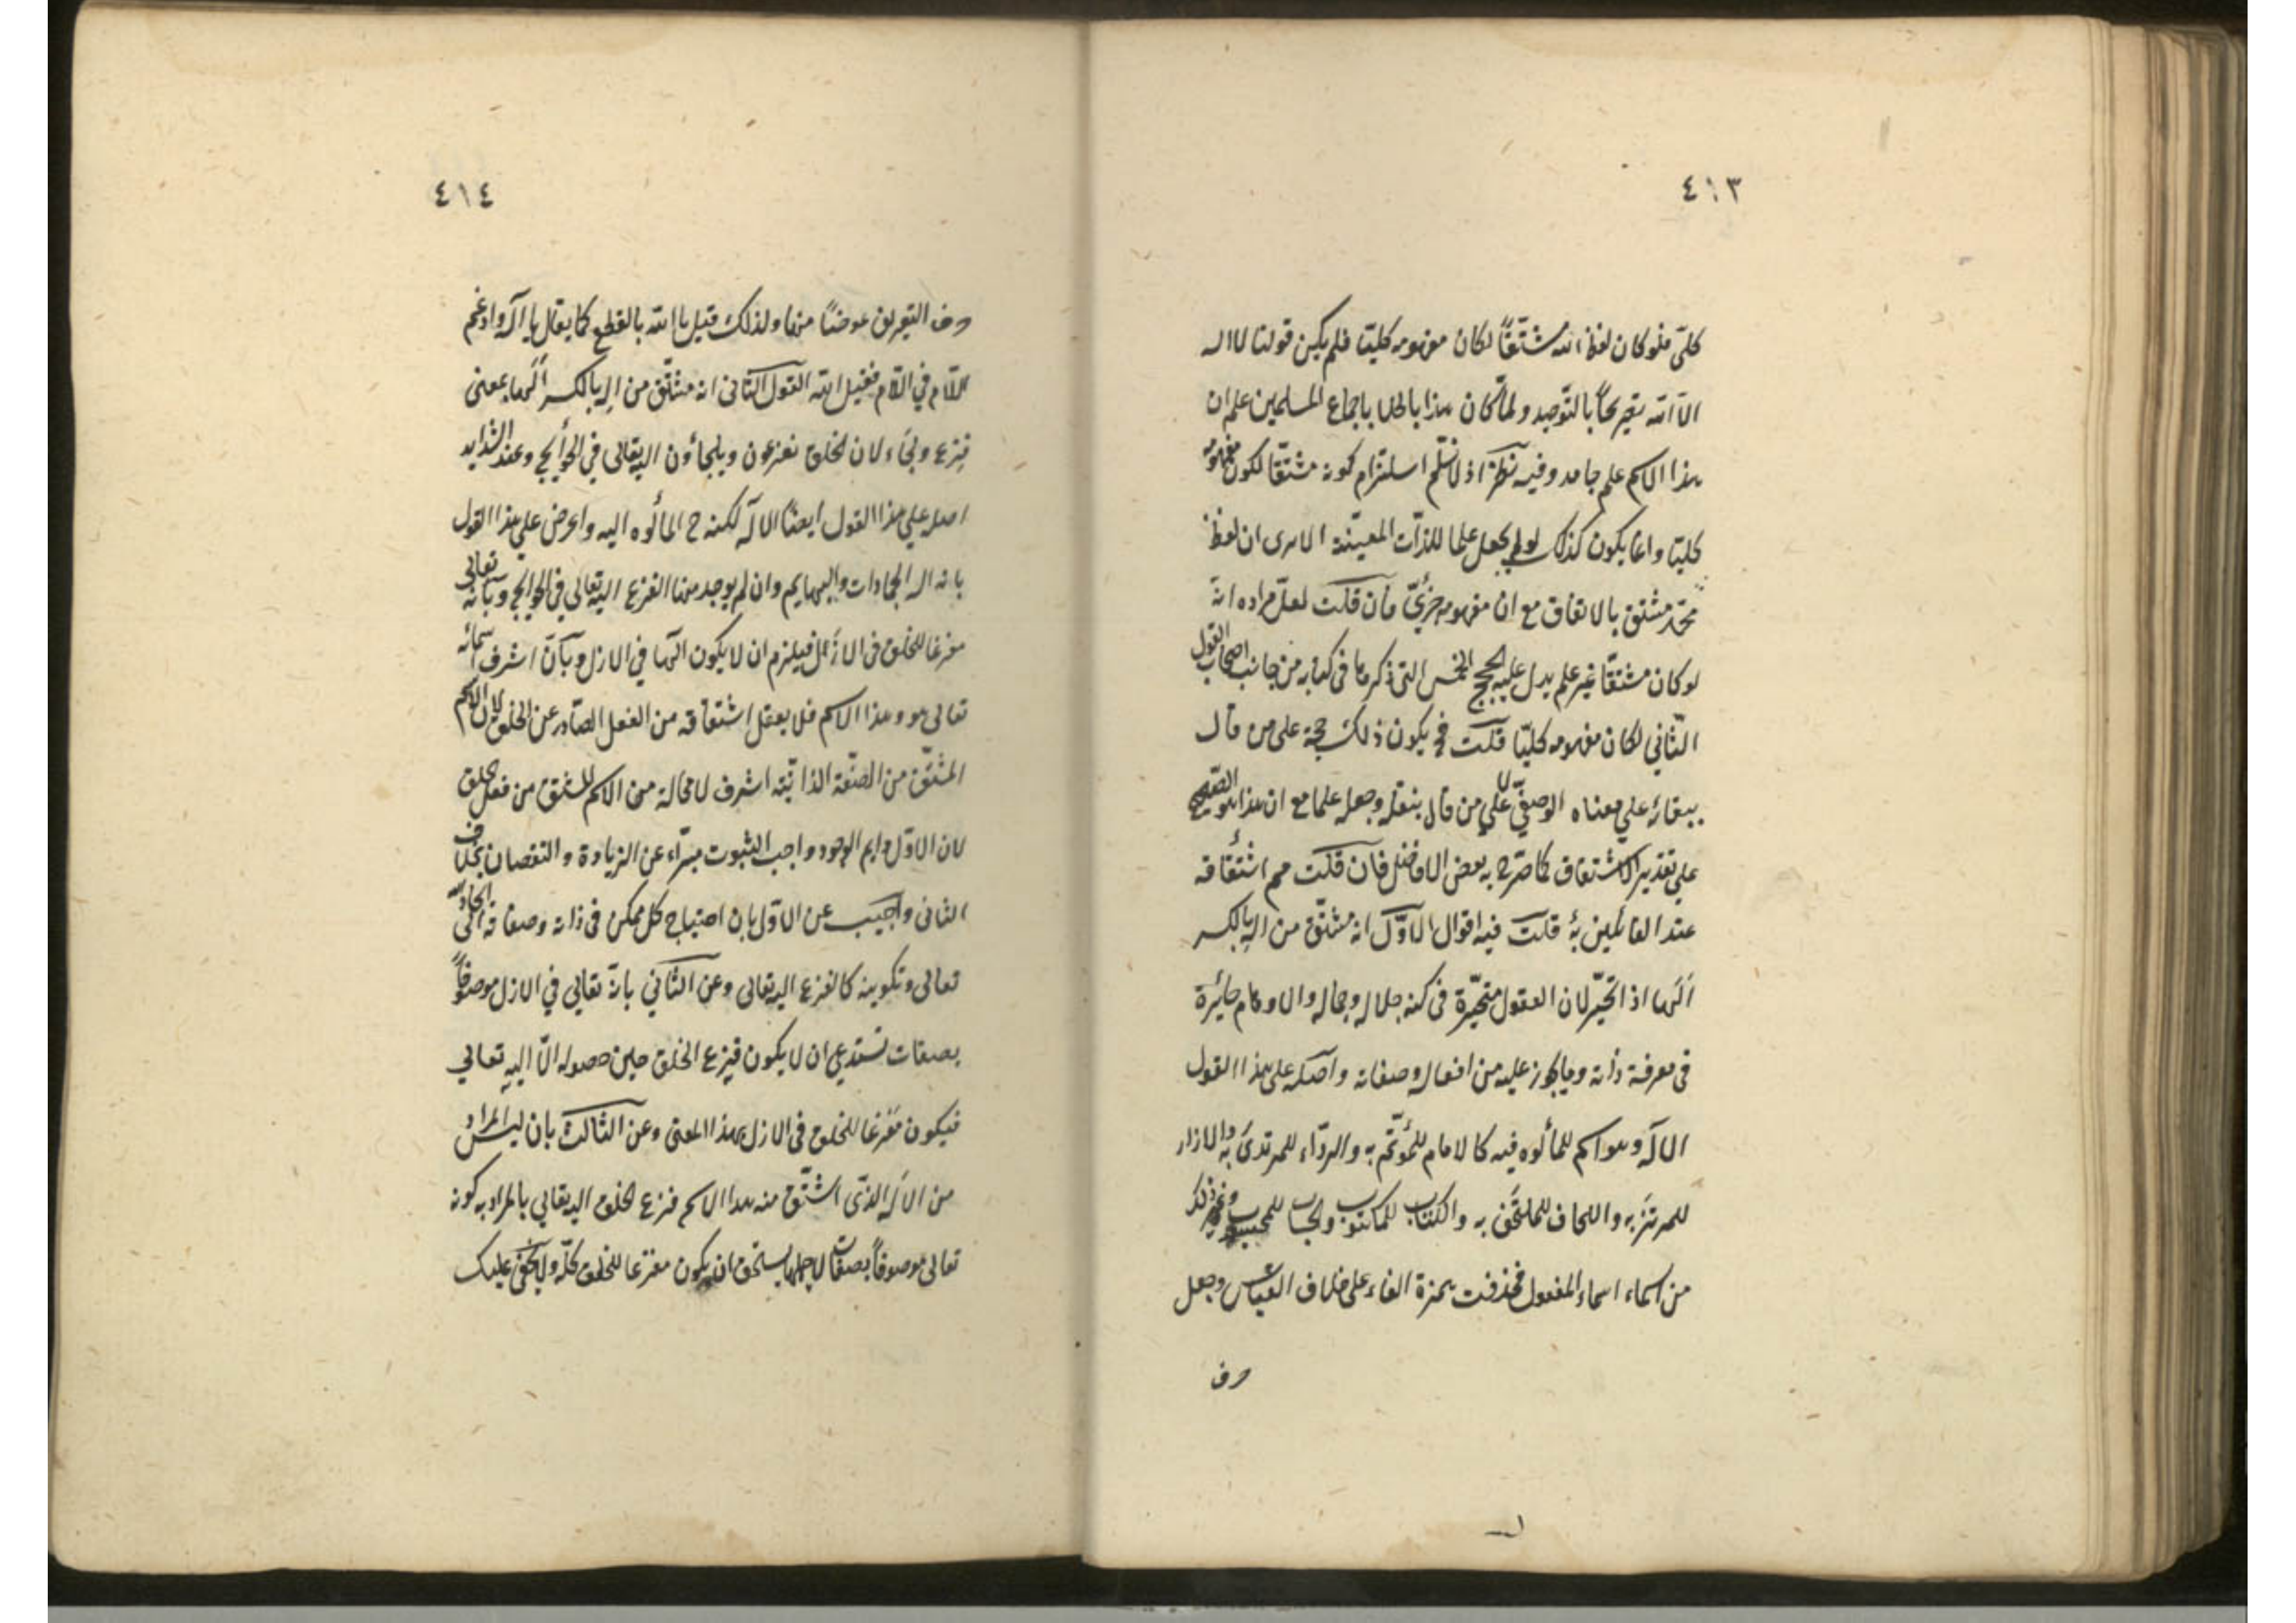 ٤١٣
كلّى فلو كان لفظ الله مشتقّاً لكان مفهومه كليّا فلم يكن قولنا لا اله
الاّ الله تصريحاً بالتّوحيد ولمّا كان هذا باطلا باجماع المسلمين علم ان
هذا الاسم علم جامد وفيه نظر اذ لا نسلّم استلزام كونه مشتقّا لكون مفهومه
كليّا وانما يكون كذلك لو لم يجعل علما للذّات المعيّنة الا يرى ان لفظ
محمّد مشتق بالاتفاق مع ان مفهومه جزئىّ فان قلت لعلّ مراده انه
لو كان مشتقّا غير علم يدل عليه الحجج الخمس التى ذكرها فى كتابه من جانب اصحاب القول
الثّاني لكان مفهومه كليّا قلت فح يكون ذلك حجة على من قال
ببقائه علي معناه الوصفيّ لا علي من قال بنقله وجعله علما مع ان هذا هو الصّحيح
علي تقدير الاشتقاق كما صرّح به بعض الافاضل فان قلت مم اشتقاقه
عند القائلين به قلت فيه اقوال الاوّل انه مشتّق من اله بالكسر
اَلَها اذا تحيّر لان العقول متحيّرة فى كنه جلاله وجماله والاوهام حائرة
فى معرفة ذاته وما يجوز عليه من افعاله وصفاته واصله على هذا القول
الاله وهو اسم للمألوه فيه كالامام للمؤتمّ به والردّاء للمرتدى به والازار
للمرتزَ به واللحاف للملتحَف به والكتاب للمكتوب والحساب للمحسوب وغير ذلك
من اسماء اسماء المفعول فحذفت همزة الفاء على خلاف القياس وجعل
حرف
٤١٤
حرف التعريف عوضًا منها ولذلك قيل يا الله بالقطع كما يقال يا اله وادغم
اللاّم في اللاّم فقيل الله القول الثانى انه مشتّق من اله بالكسر اَلَها بمعنى
فزع ولجاء لان الخلق يفزعون ويلجاؤن اليه تعالى في الحوائج وعند الشدايد
اصله علي هذا القول ايضًا الاله لكنه ح المألوه اليه واعرض علي هذا القول
بانه اله الجمادات والبهايم وان لم يوجد منها الفزع اليه تعالي في الحوايج وبانه تعالى
مفزعا للخلق فى الازل فيلزم ان لا يكون الهًا في الازل وبانّ اشرف اسمائه
تعالى هو هذا الاسم فلا يعقل اشتقاقه من الفعل الصّادر عن الخلق لان الاسم
المشتّق من الصّفة الذاتيّه اشرف لا محالة من الاسم المشتق من فعل الخلق
لان الاوّل دايم الوجود واجب الثبوت مبرّاء عن الزيادة والنقصان بخلاف
الثانى واجيب عن الاوّل بان احتياج كل ممكن فى ذاته وصفاته الى ايجاده
تعالى وتكوينه كالفزع اليه تعالى وعن الثّاني بانّه تعالي في الازل موصوفاً
بصفات تستدعي ان لا يكون فزع الخلق حين حصوله الاّ اليه تعالي
فيكون مَفزعا للخلق فى الازل بهذا المعنى وعن الثالث بان ليس المراد
من الاَلَه الذّى اشتّق منه هذا الاسم فزع الخلق اليه تعالي بل المراد به كونه
تعالى موصوفاً بصفات لاجلها يستحق ان يكون مفزعا للخلق كلّه ولا يخفى عليك